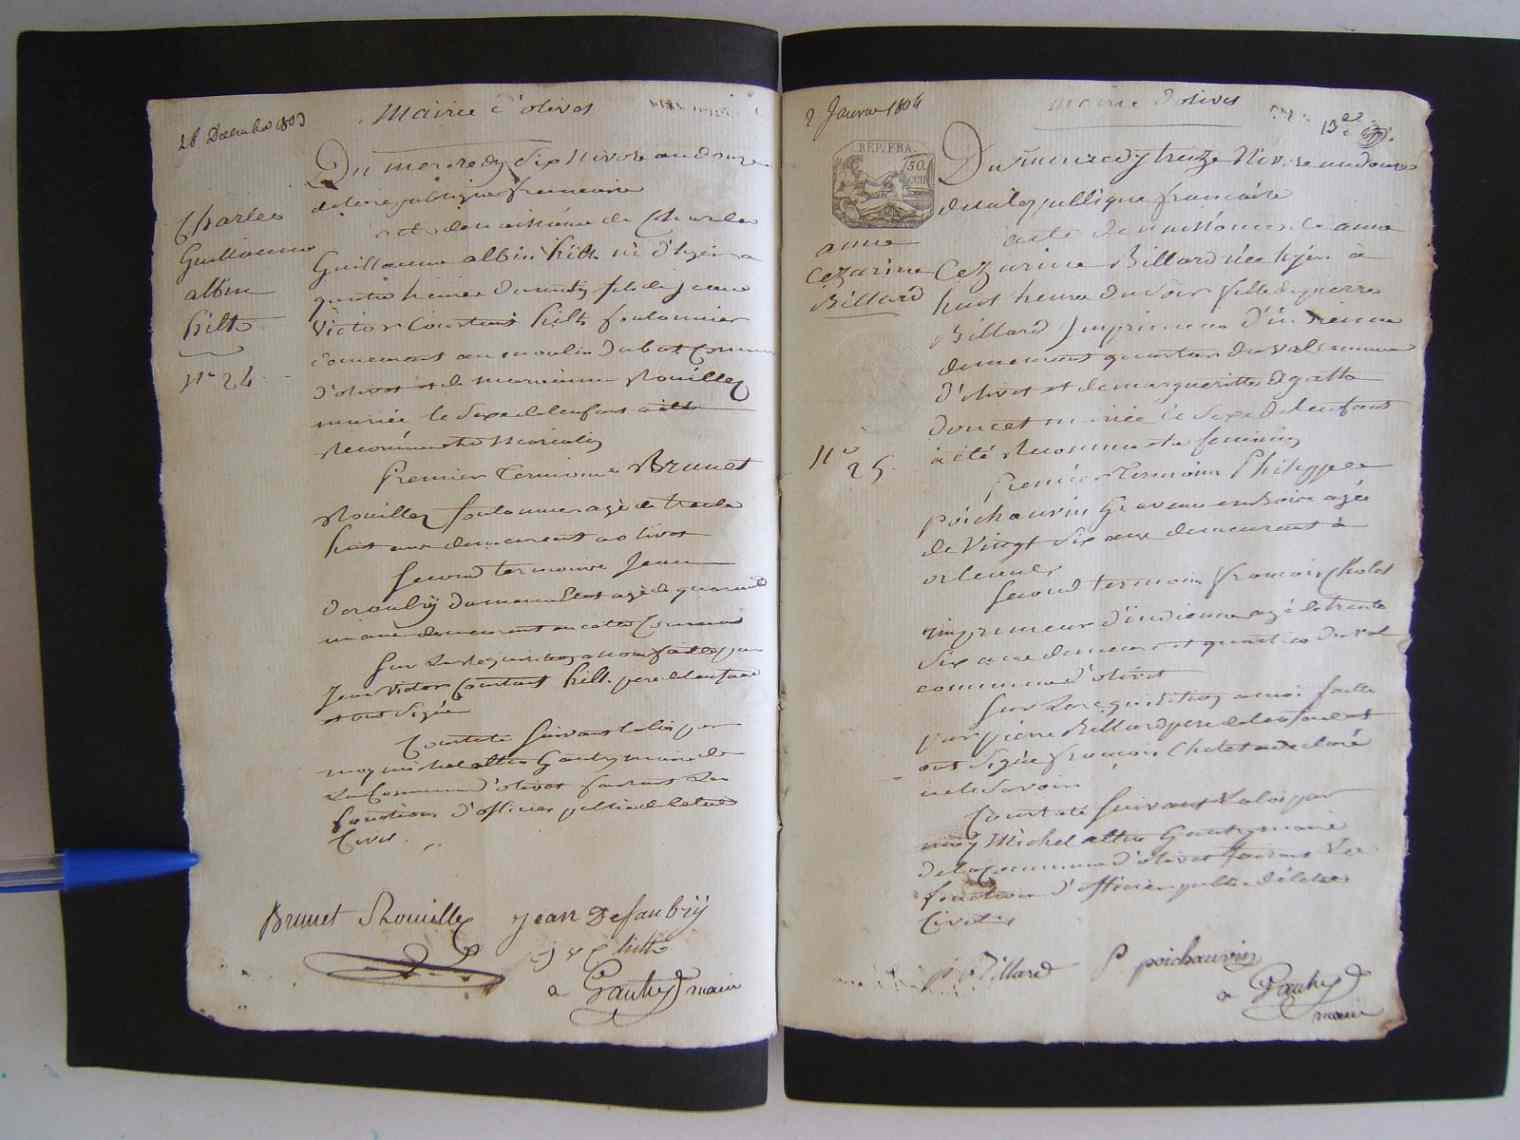 28 Decembre 1803
Mairie d'olivet
Du mercredy Six Nivose an douze
de la republique francaise
Charles
Guillaume
albin
hilt
N° 24
acte de naissance de Charles
Guillaume albin hilt né d'hyer a
quatre heures du fils de jean
Victor Constant hilt foulonnier
demeurant au moulin du bat Commune
d'olivet et de marianne Rouillez
mariée le Sexe de l'enfant a été
Reconnu etre Masculin
Premier temoin Brunet
Rouillez foulonnier agé de trente
huit ans demeurant a olivet
Second temoin Jean
agé de quarante
un ans demeurant en cette Commune
Sur la Requisition a nous faitte par
Jean Victor Constant hilt pere de l'enfant
et ont Signé
Constaté Suivant la loi par
moy michel altin Gautry maire de
La Commune d'olivet faisant Les
fonctions d'officier public de l'etat
Civil
Brunet Rouillez Jean Defaubrÿ
j v c hilt
a Gautry maire
2 Janvier 1804
Mairie d'olivet
13e
REP. FRA.
50.
CEN
Du treize Nivose an douze
de la republique francaise
anne
Cezarine
Billard
N° 25.
acte de naissance de anne
Cezarine Billard née hyer à
huit heures du Soir fille de pierre
Billard Imprimeur d'indienne
demeurant quartier du val commune
d'olivet et de margueritte agatte
doucet mariée le Sexe de l'enfant
à été Reconnu etre feminin
Premier temoin Philippe
poichauvin Graveur en bois agé
de Vingt Six ans demeurant à
orleans
Second temoin francois Cholet
imprimeur d'indienne agé de trente
Six ans demeurant quartier du val
commune d'olivet
Sur La requisition a nous faitte
par pierre Billard pere de l'enfant et
ont Signé francois Cholet a declaré
ne le Savoir
Constaté Suivant La loi par
moy Michel altin Gautry maire
de la Commune d'olivet faisant Les
fonctions d'officier public de l'etat
Civil
p Billard P poichauvin
a Gautry
maire